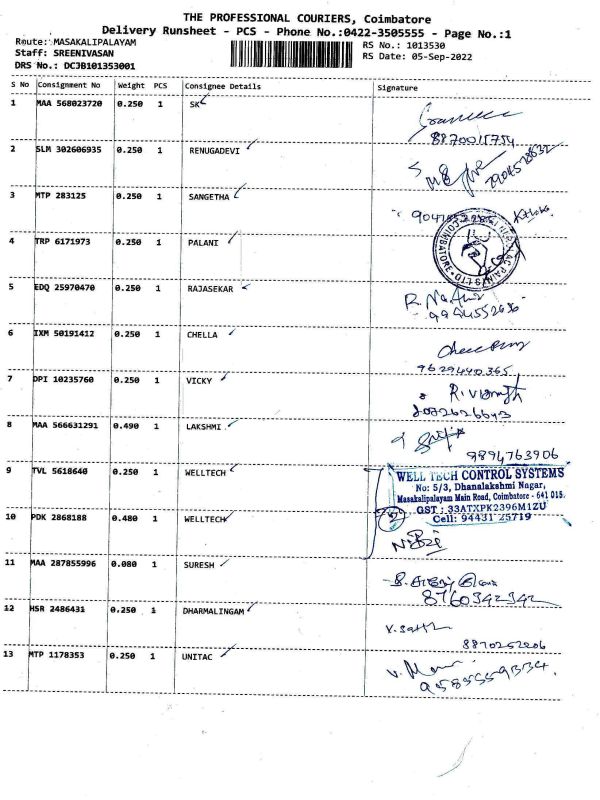 THE PROFESSIONAL COURIERS, Coimbatore
Delivery Runsheet - PCS - Phone No.:0422-3505555 - Page No.:1
Route: MASAKALIPALAYAM
Staff: SREENIVASAN
DRS No.: DCJB101353001
RS No.: 1013530
RS Date: 05-Sep-2022
S No Consignment No Weight PCS Consignee Details Signature
1 MAA 568023720 0.250 1 SK
8870015754
2 SLM 302606935 0.250 1 RENUGADEVI
3 MTP 283125 0.250 1 SANGETHA
4 TRP 6171973 0.250 1 PALANI
COIMBATORE
5 EDQ 25970470 0.250 1 RAJASEKAR
9994552636
6 IXM 50191412 0.250 1 CHELLA
9629440365
7 DPI 10235760 0.250 1 VICKY
8 MAA 566631291 0.490 1 LAKSHMI
9894763906
9 TVL 5618640 0.250 1 WELLTECH
WELL TECH CONTROL SYSTEMS
No: 5/3, Dhanalakshmi Nagar,
Masakalipalayam Main Road, Coimbatore - 641 015.
GST : 33ATXPK2396M1ZU
Cell: 94431 25719
10 PDK 2868188 0.480 1 WELLTECH
11 MAA 287855996 0.080 1 SURESH
8760342342
12 HSR 2486431 0.250 1 DHARMALINGAM
8870252206
13 MTP 1178353 0.250 1 UNITAC
9585559334